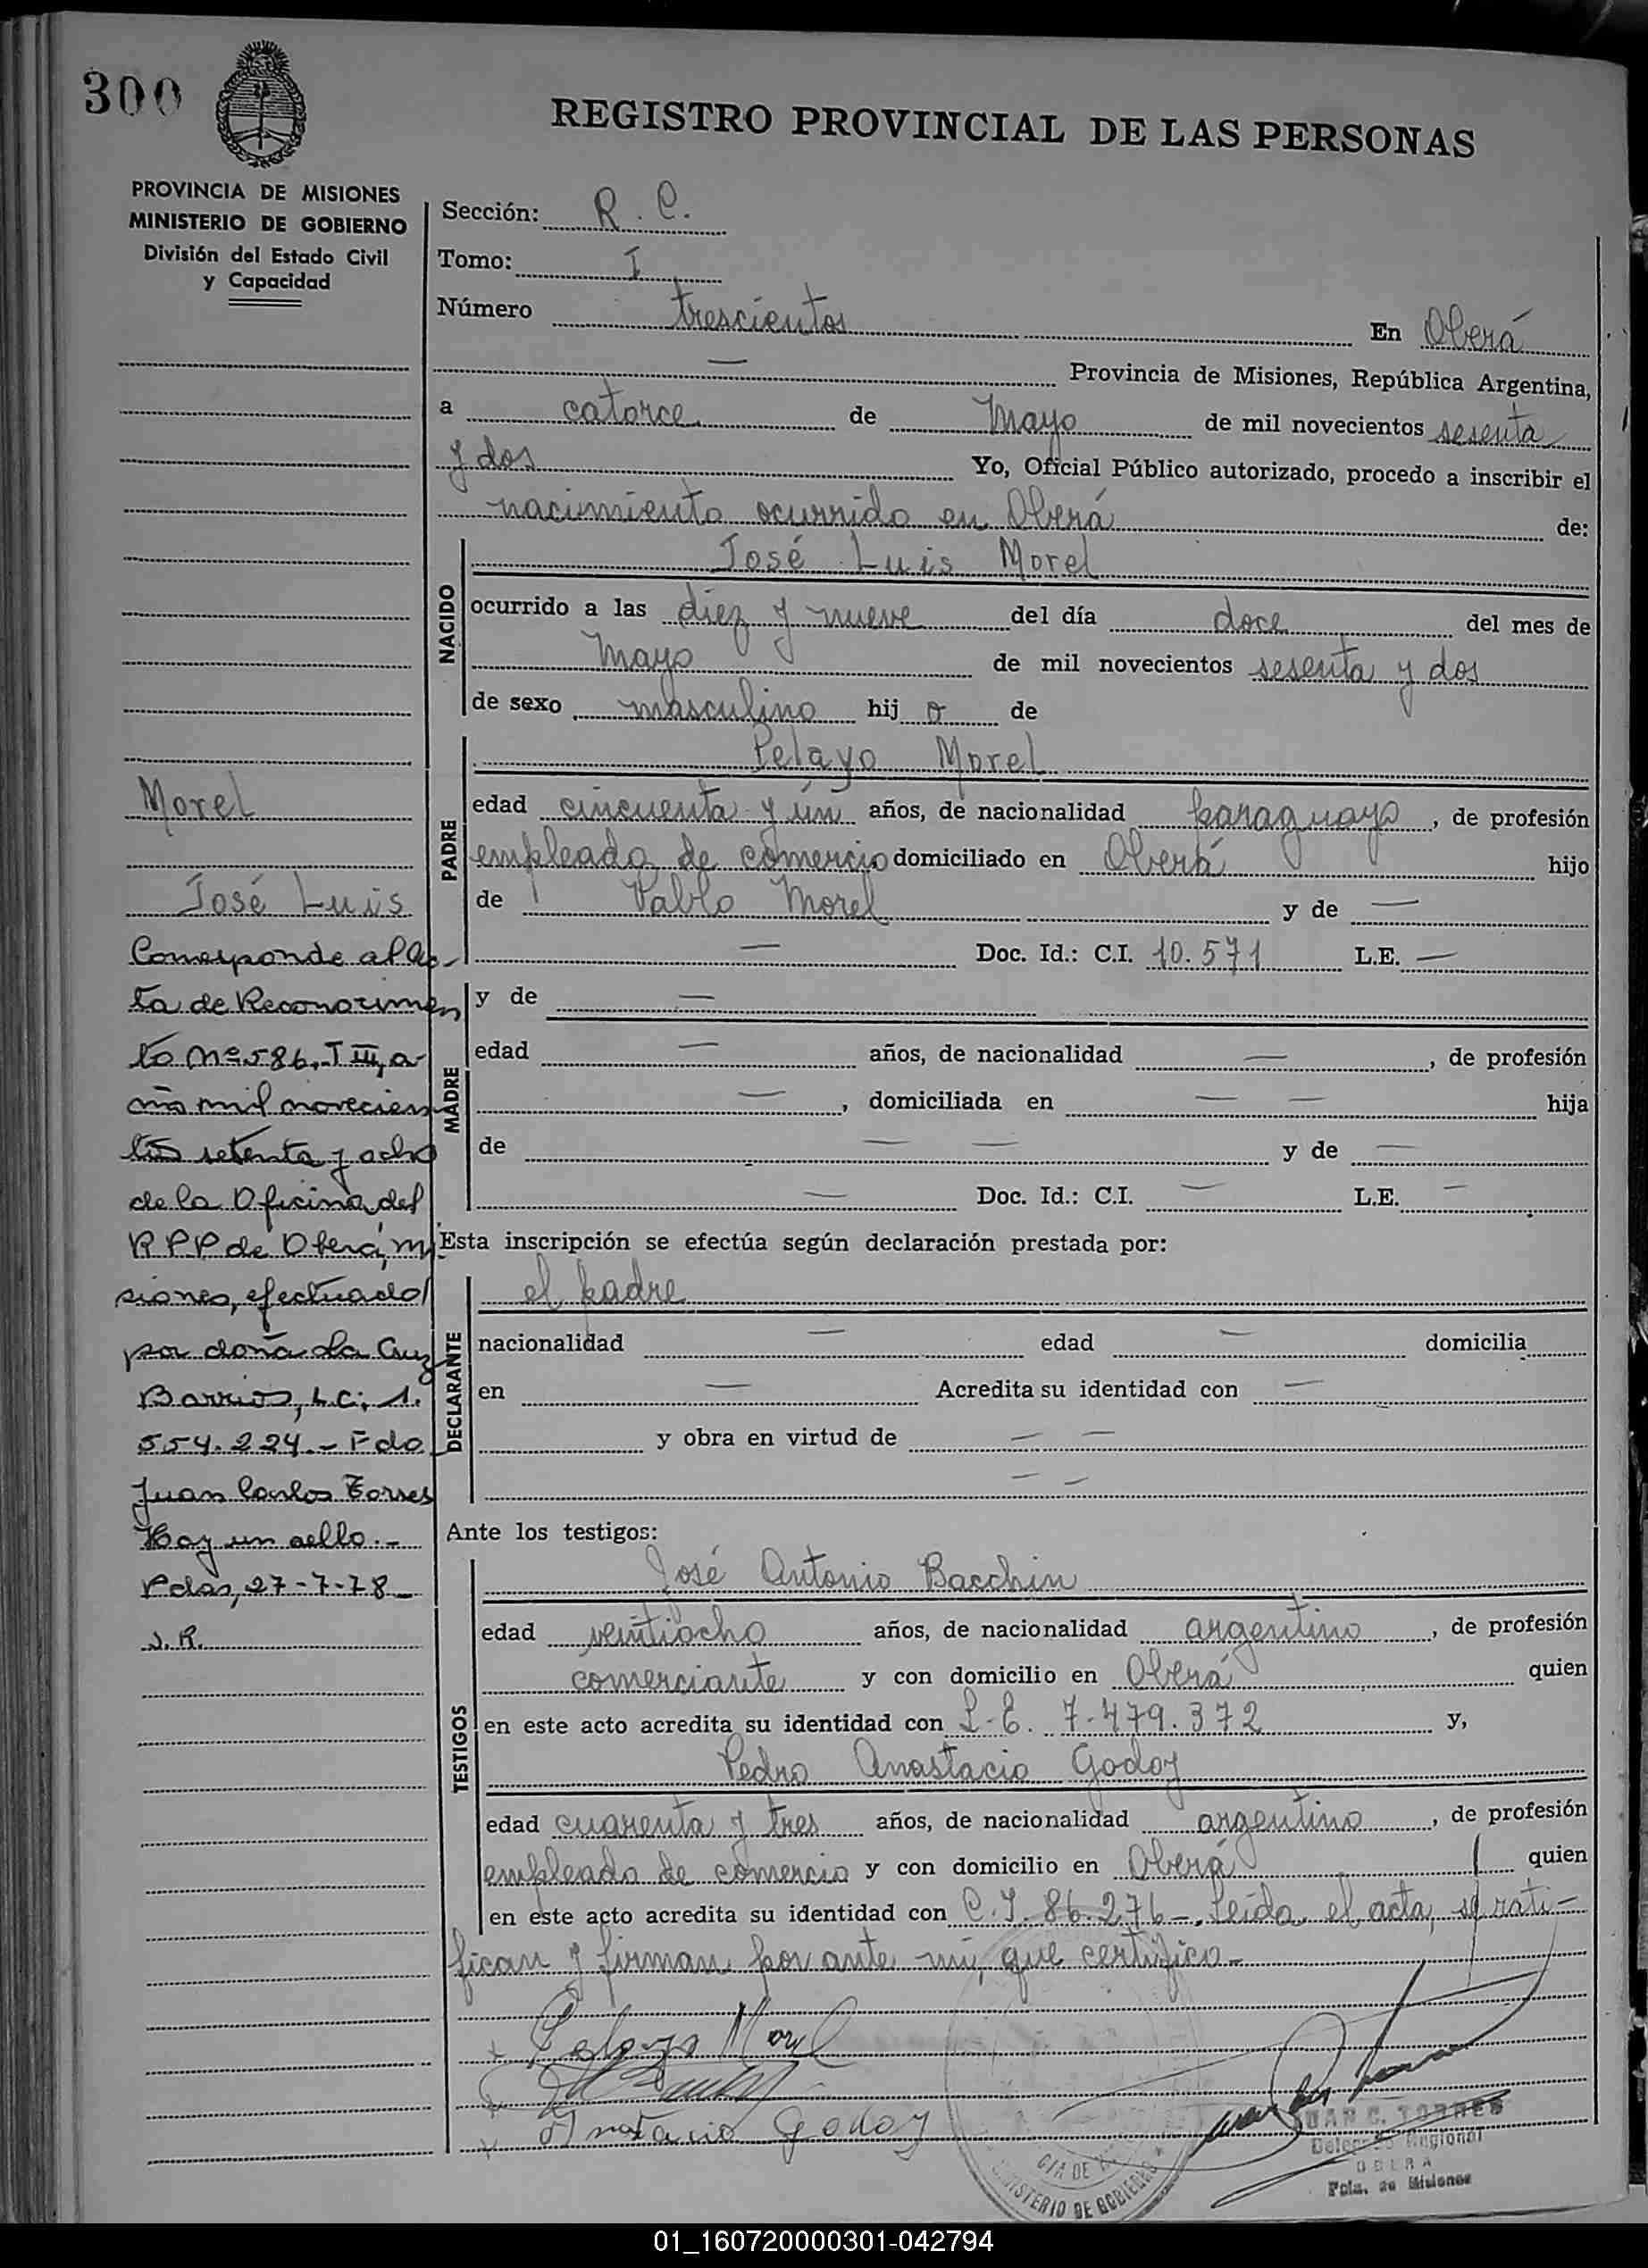 300
REGISTRO PROVINCIAL DE LAS PERSONAS
PROVINCIA DE MISIONES
MINISTERIO DE GOBIERNO
División del Estado Civil
y Capacidad
Sección: R. C.
Tomo: I
Número trescientos En Oberá
— Provincia de Misiones, República Argentina,
a catorce de Mayo de mil novecientos sesenta
y dos Yo, Oficial Público autorizado, procedo a inscribir el
nacimiento ocurrido en Oberá de:
NACIDO
José Luis Morel
ocurrido a las diez y nueve del día doce del mes de
Mayo de mil novecientos sesenta y dos
de sexo masculino hij o de
PADRE
Pelayo Morel
edad cincuenta y ún años, de nacionalidad paraguayo, de profesión
empleado de comercio domiciliado en Oberá hijo
de Pablo Morel y de —
— Doc. Id.: C.I. 10.571 L.E. —
MADRE
y de —
edad — años, de nacionalidad —, de profesión
—, domiciliada en — — hija
de — — y de —
— Doc. Id.: C.I. — L.E. —
Esta inscripción se efectúa según declaración prestada por:
DECLARANTE
el padre
nacionalidad — edad — domicilia
en — Acredita su identidad con —
y obra en virtud de — —
— —
Ante los testigos:
TESTIGOS
José Antonio Bacchin
edad veintiocho años, de nacionalidad argentino, de profesión
comerciante y con domicilio en Oberá quien
en este acto acredita su identidad con L.E. 7.479.372 y,
Pedro Anastacio Godoy
edad cuarenta y tres años, de nacionalidad argentino, de profesión
empleado de comercio y con domicilio en Oberá quien
en este acto acredita su identidad con C.I. 86.276 -. Leída el acta, se rati-
fican y firman por ante mí, que certifico.-
Pelayo Morel
Anastacio Godoy
JUAN C. TORRES
Delegado Regional
OBERA
Pcia. de Misiones
MINISTERIO DE GOBIERNO
Morel
José Luis
Corresponde al Ac-
ta de Reconocimien
to Nº 586, T III, a-
ño mil novecien
tos setenta y ocho
de la Oficina del
RPP de Oberá, Mi
siones, efectuado
por doña La Cruz
Barrios, L.C: 1.
554.224.- Fdo
Juan Carlos Torres
Hay un sello.-
Pdas, 27-7-78
J.R.
01_160720000301-042794